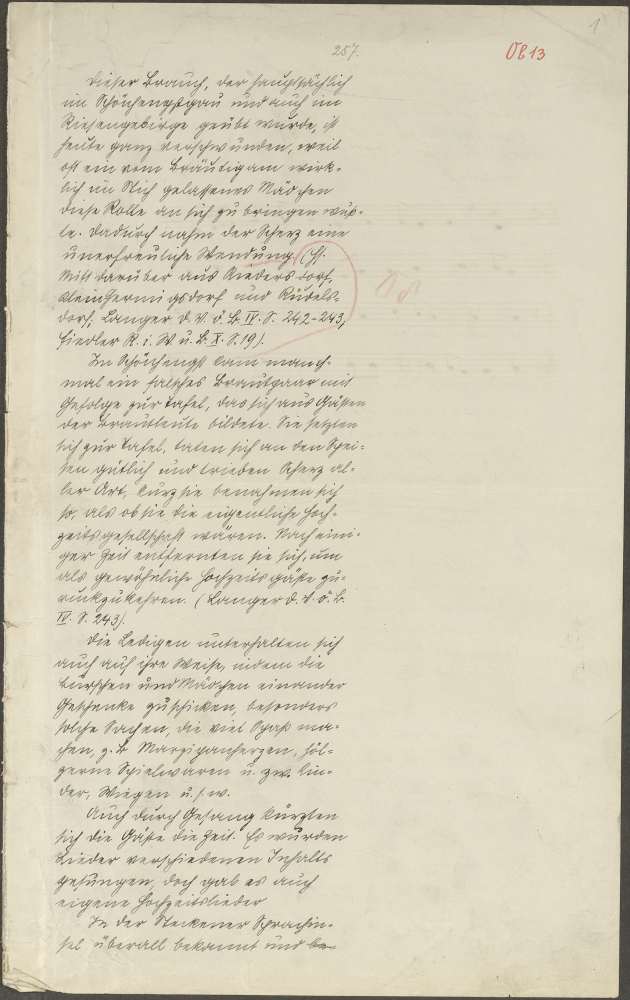 1
257.
OB 13
Dieser Brauch, der hauptsächlich
im Schönhengstgau und auch im
Riesengebirge geübt wurde, ist
heute ganz verschwunden, weil
oft ein vom Bräutigam wirk-
lich im Stich gelassenes Mädchen
diese Rolle an sich zu bringen wuß-
te. Dadurch nahm der Scherz eine
unerfreuliche Wendung. (Hs.
Mitt darüber aus Niedersdorf,
Kleinhermigsdorf und Rudels-
dorf, Langer d. V. ö. B. IV. S. 242-243,
Fiedler R. i. W. u. B. X. S. 19).
Im Schönhengst kam manch-
mal ein falsches Brautpaar mit
Gefolge zur Tafel, das sich aus Gästen
der Brautleute bildete. Sie setzten
sich zur Tafel, taten sich an den Spei-
sen gütlich und trieben Scherz al-
ler Art, kurz sie benahmen sich
so, als ob sie die eigentliche Hoch-
zeitsgesellschaft wären. Nach eini-
ger Zeit entfernten sie sich, um
als gewöhnliche Hochzeitsgäste zu-
rückzukehren. (Langer d. V. ö. B.
IV. S. 243).
Die Ledigen unterhalten sich
auch auf ihre Weise, indem die
Burschen und Mädchen einander
Geschenke zuschicken, besonders
solche Sachen, die viel Spaß ma-
chen, z. B. Marzipanherzen, höl-
zerne Spielwaren u. zw. Kin-
der, Wiegen u. s. w.
Auch durch Gesang kürzten
sich die Gäste die Zeit. Es wurden
Lieder verschiedenen Inhalts
gesungen, doch gab es auch
eigene Hochzeitslieder
In der Steckener Sprachin-
sel überall bekannt und be-